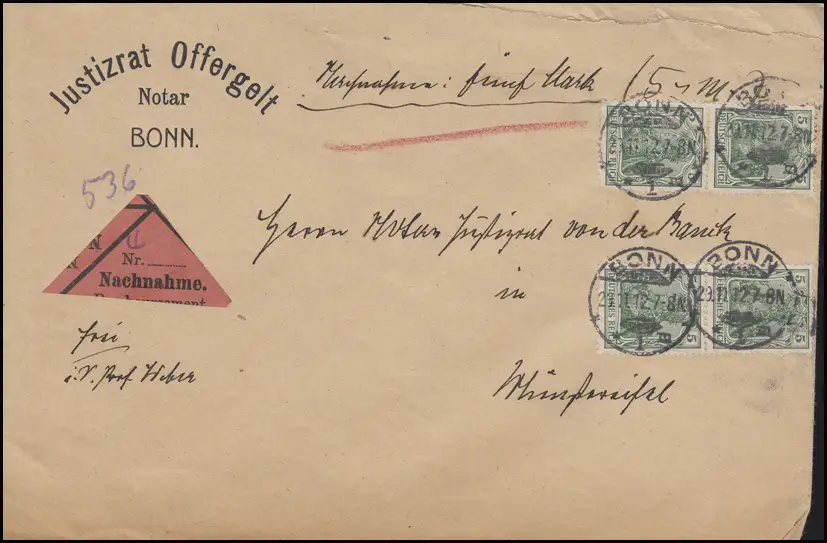 Justizrat Offergelt
Notar
BONN.
Nachnahme: fünf Mark (5 M,
536
N 4
N
Nr.
Nachnahme.
Remboursement
Herrn Notar Justizrat von der
in
Münstereifel
frei
i. S. Prof. Weber
5 DEUTSCHES REICH
5 DEUTSCHES REICH
BONN 1
29.11.12.7-8N
BONN 1
29.11.12.7-8N
5 DEUTSCHES REICH
5
BONN 1
29.11.12.7-8N
BONN 1
29.11.12.7-8N